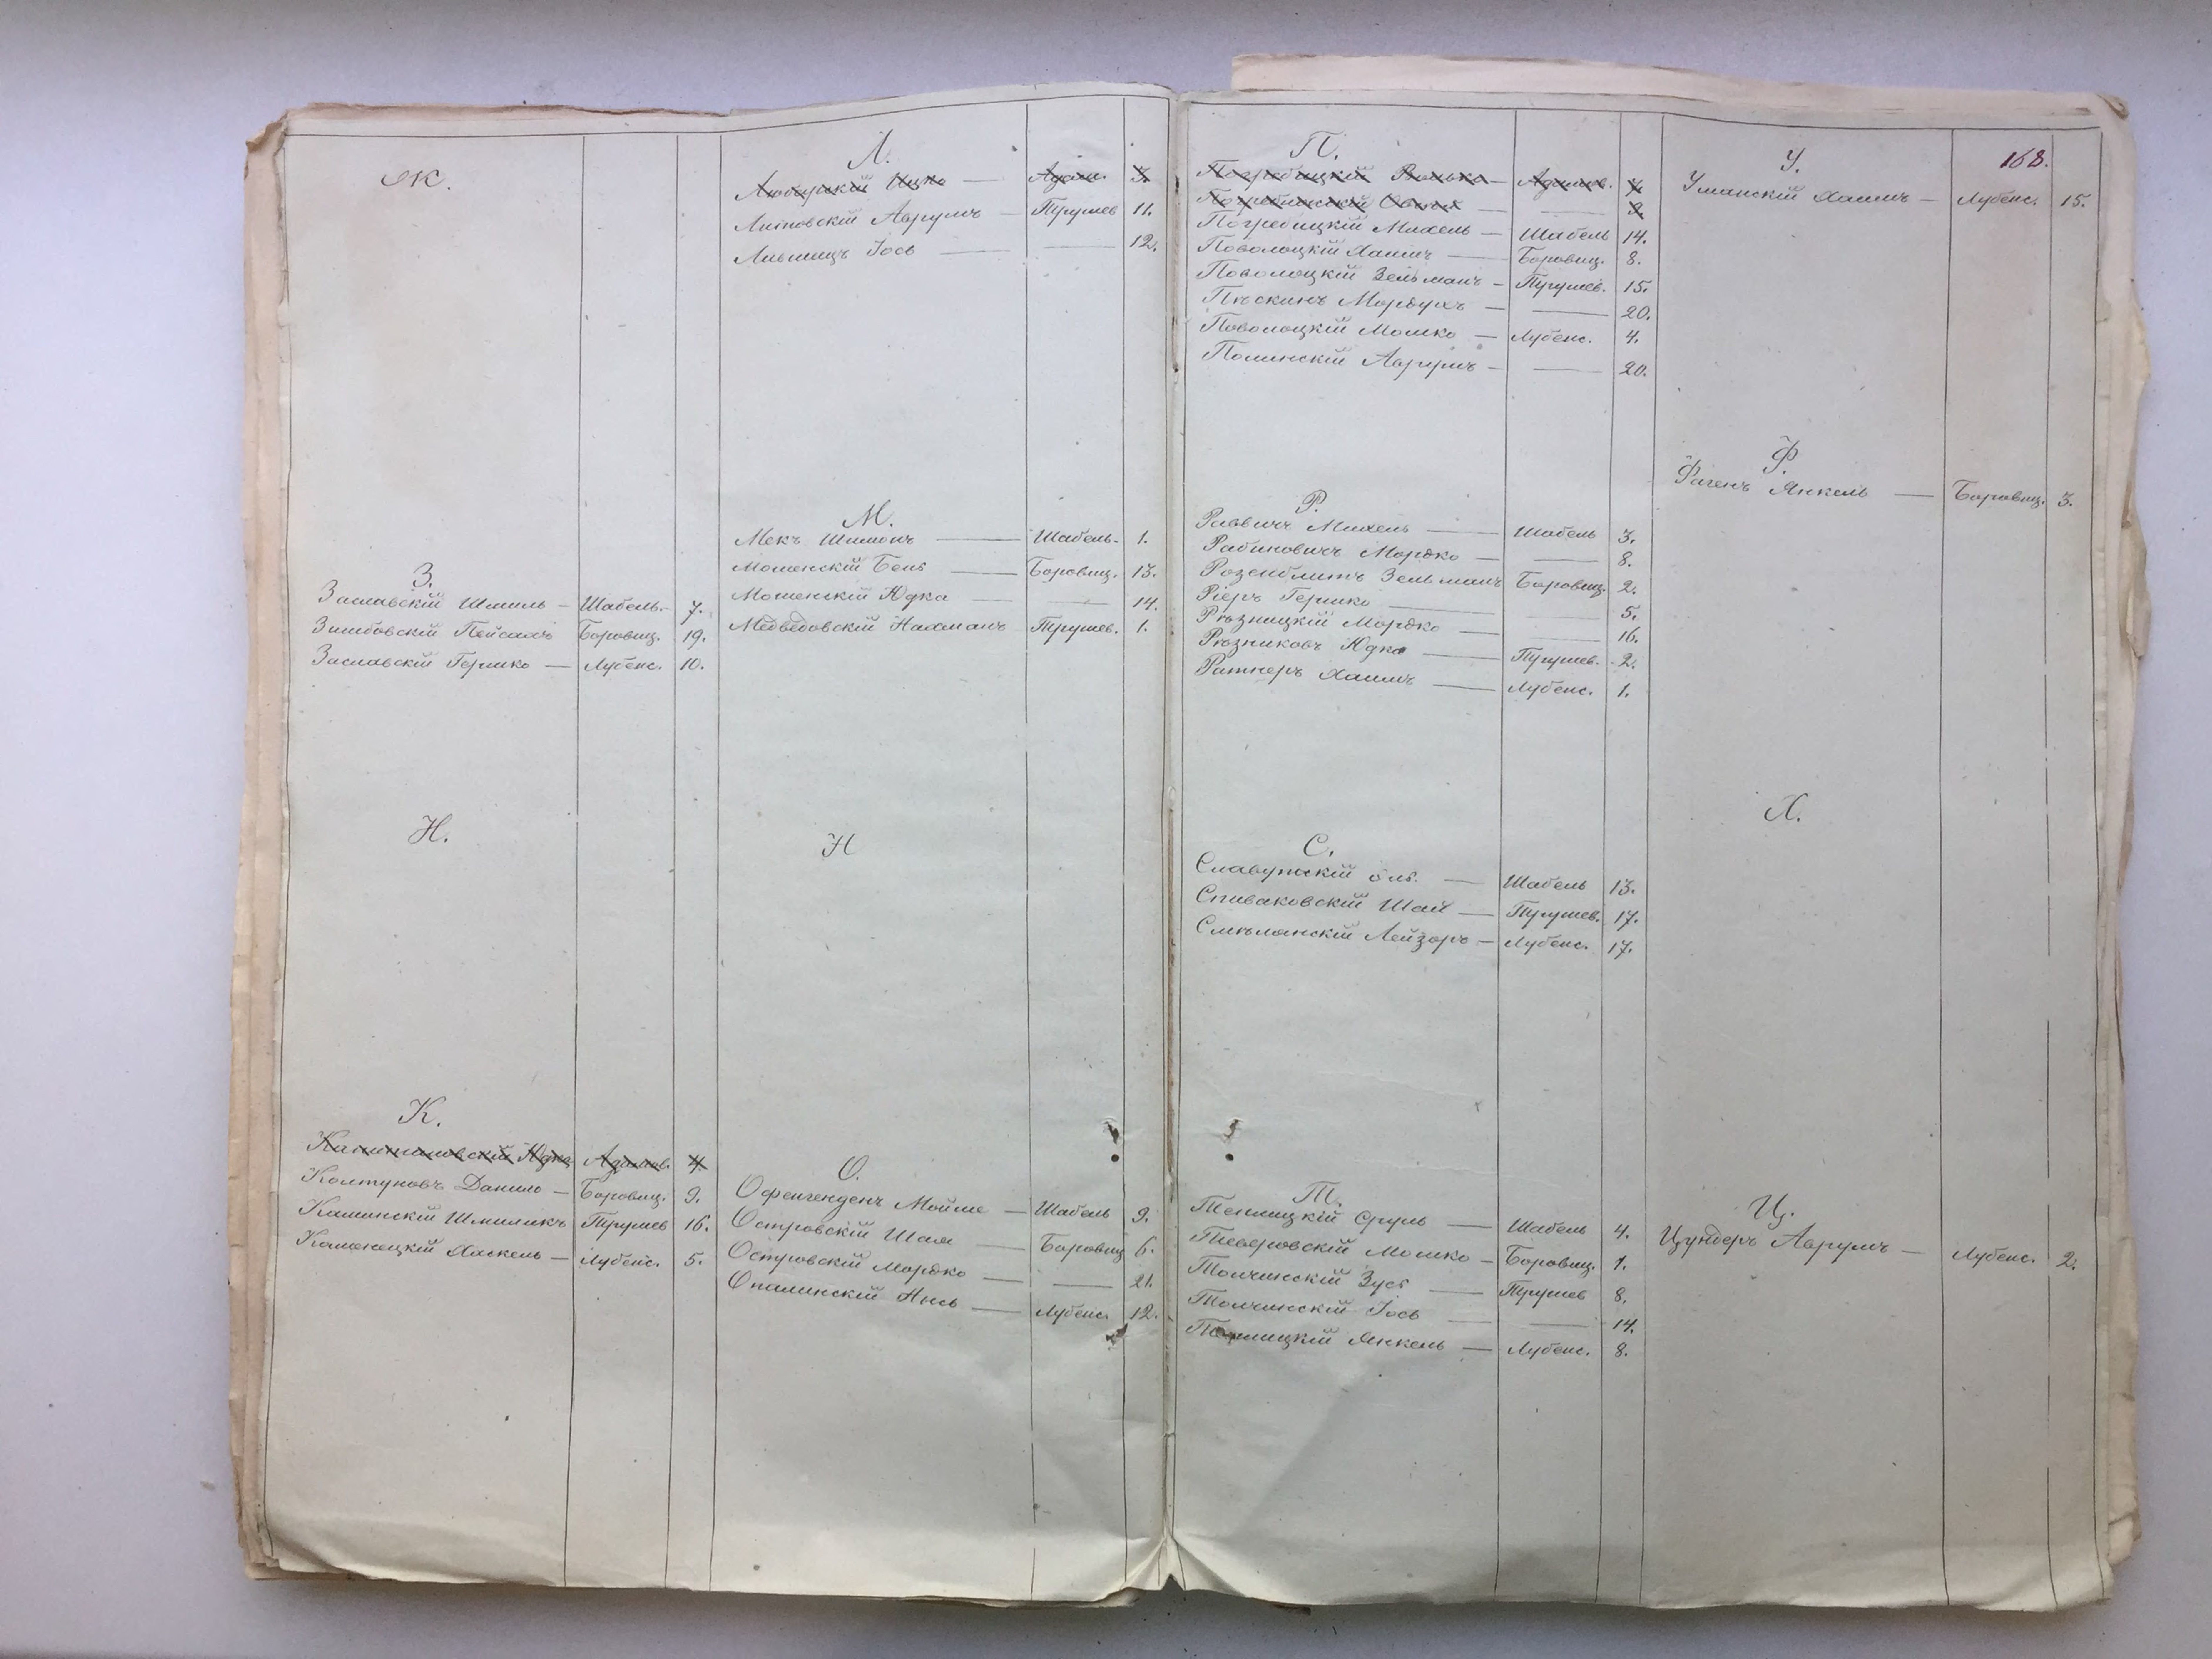 Ж.
З.
Заславскій Шмиль — Шабель. 7.
Зимбовскій Пейсахъ Боровиц. 19.
Заславскій Гершко — Лубенс. 10.
И.
К.
Юдка Адамов. 4
Колтуновъ Данило — Боровиц. 9.
Каминскій Шмиликъ Трушев 16.
Каменецкій Хаскель — Лубенс. 5.
Л.
Ицко — Адам. 3.
Литовскій Аврумъ — Трушев 11.
Лившицъ Іось — — 12.
М.
Мекъ Шимонъ — Шабель. 1.
Мошенскій Бень — Боровиц. 13.
Мошенскій Юдка — — 14.
Медведовскій Нахманъ Трушев. 1.
Н
О.
Офенгенденъ Мойше — Шабель 9.
Островскій Шая — Боровиц 6.
Островскій Мордко — — 21.
Опалинскій Янсь — Лубенс. 12.
П.
Погребицкій Волько — Адамов. 4.
— — 9.
Погребицкій Михель — Шабель 14.
Поволоцкій Хаимъ — Боровиц. 8.
Поволоцкій Зельманъ — Трушев. 15.
Пѣскинъ Мордухъ — — 20.
Поволоцкій Мошко — Лубенс. 4.
Полинскій Аврумъ — — 20.
Р.
Раввичъ Михель — Шабель 3.
Рабиновичъ Мордко — — 8.
Розенблитъ Зельманъ Боровиц. 2.
Ріеръ Гершко — — 5.
Рѣзницкій Мордко — — 16.
Рѣзниковъ Юдка — Трушев. 2.
Ратнеръ Хаимъ — Лубенс. 1.
С.
Славутскій — Шабель 13.
Спиваковскій Шая — Трушев. 17.
Смѣлянскій Лейзоръ — Лубенс. 17.
Т.
Теплицкій Сруль — Шабель 4.
Тверовскій Мошко — Боровиц. 1.
Толчинскій Зусь — Трушев 8.
Толчинскій Іось — — 14.
Теплицкій Янкель — Лубенс. 8.
168.
У.
Уманскій Хаимъ — Лубенс. 15.
Ф.
Фагенъ Янкель — Боровиц. 3.
Х.
Ц.
Цундеръ Аврумъ — Лубенс. 2.